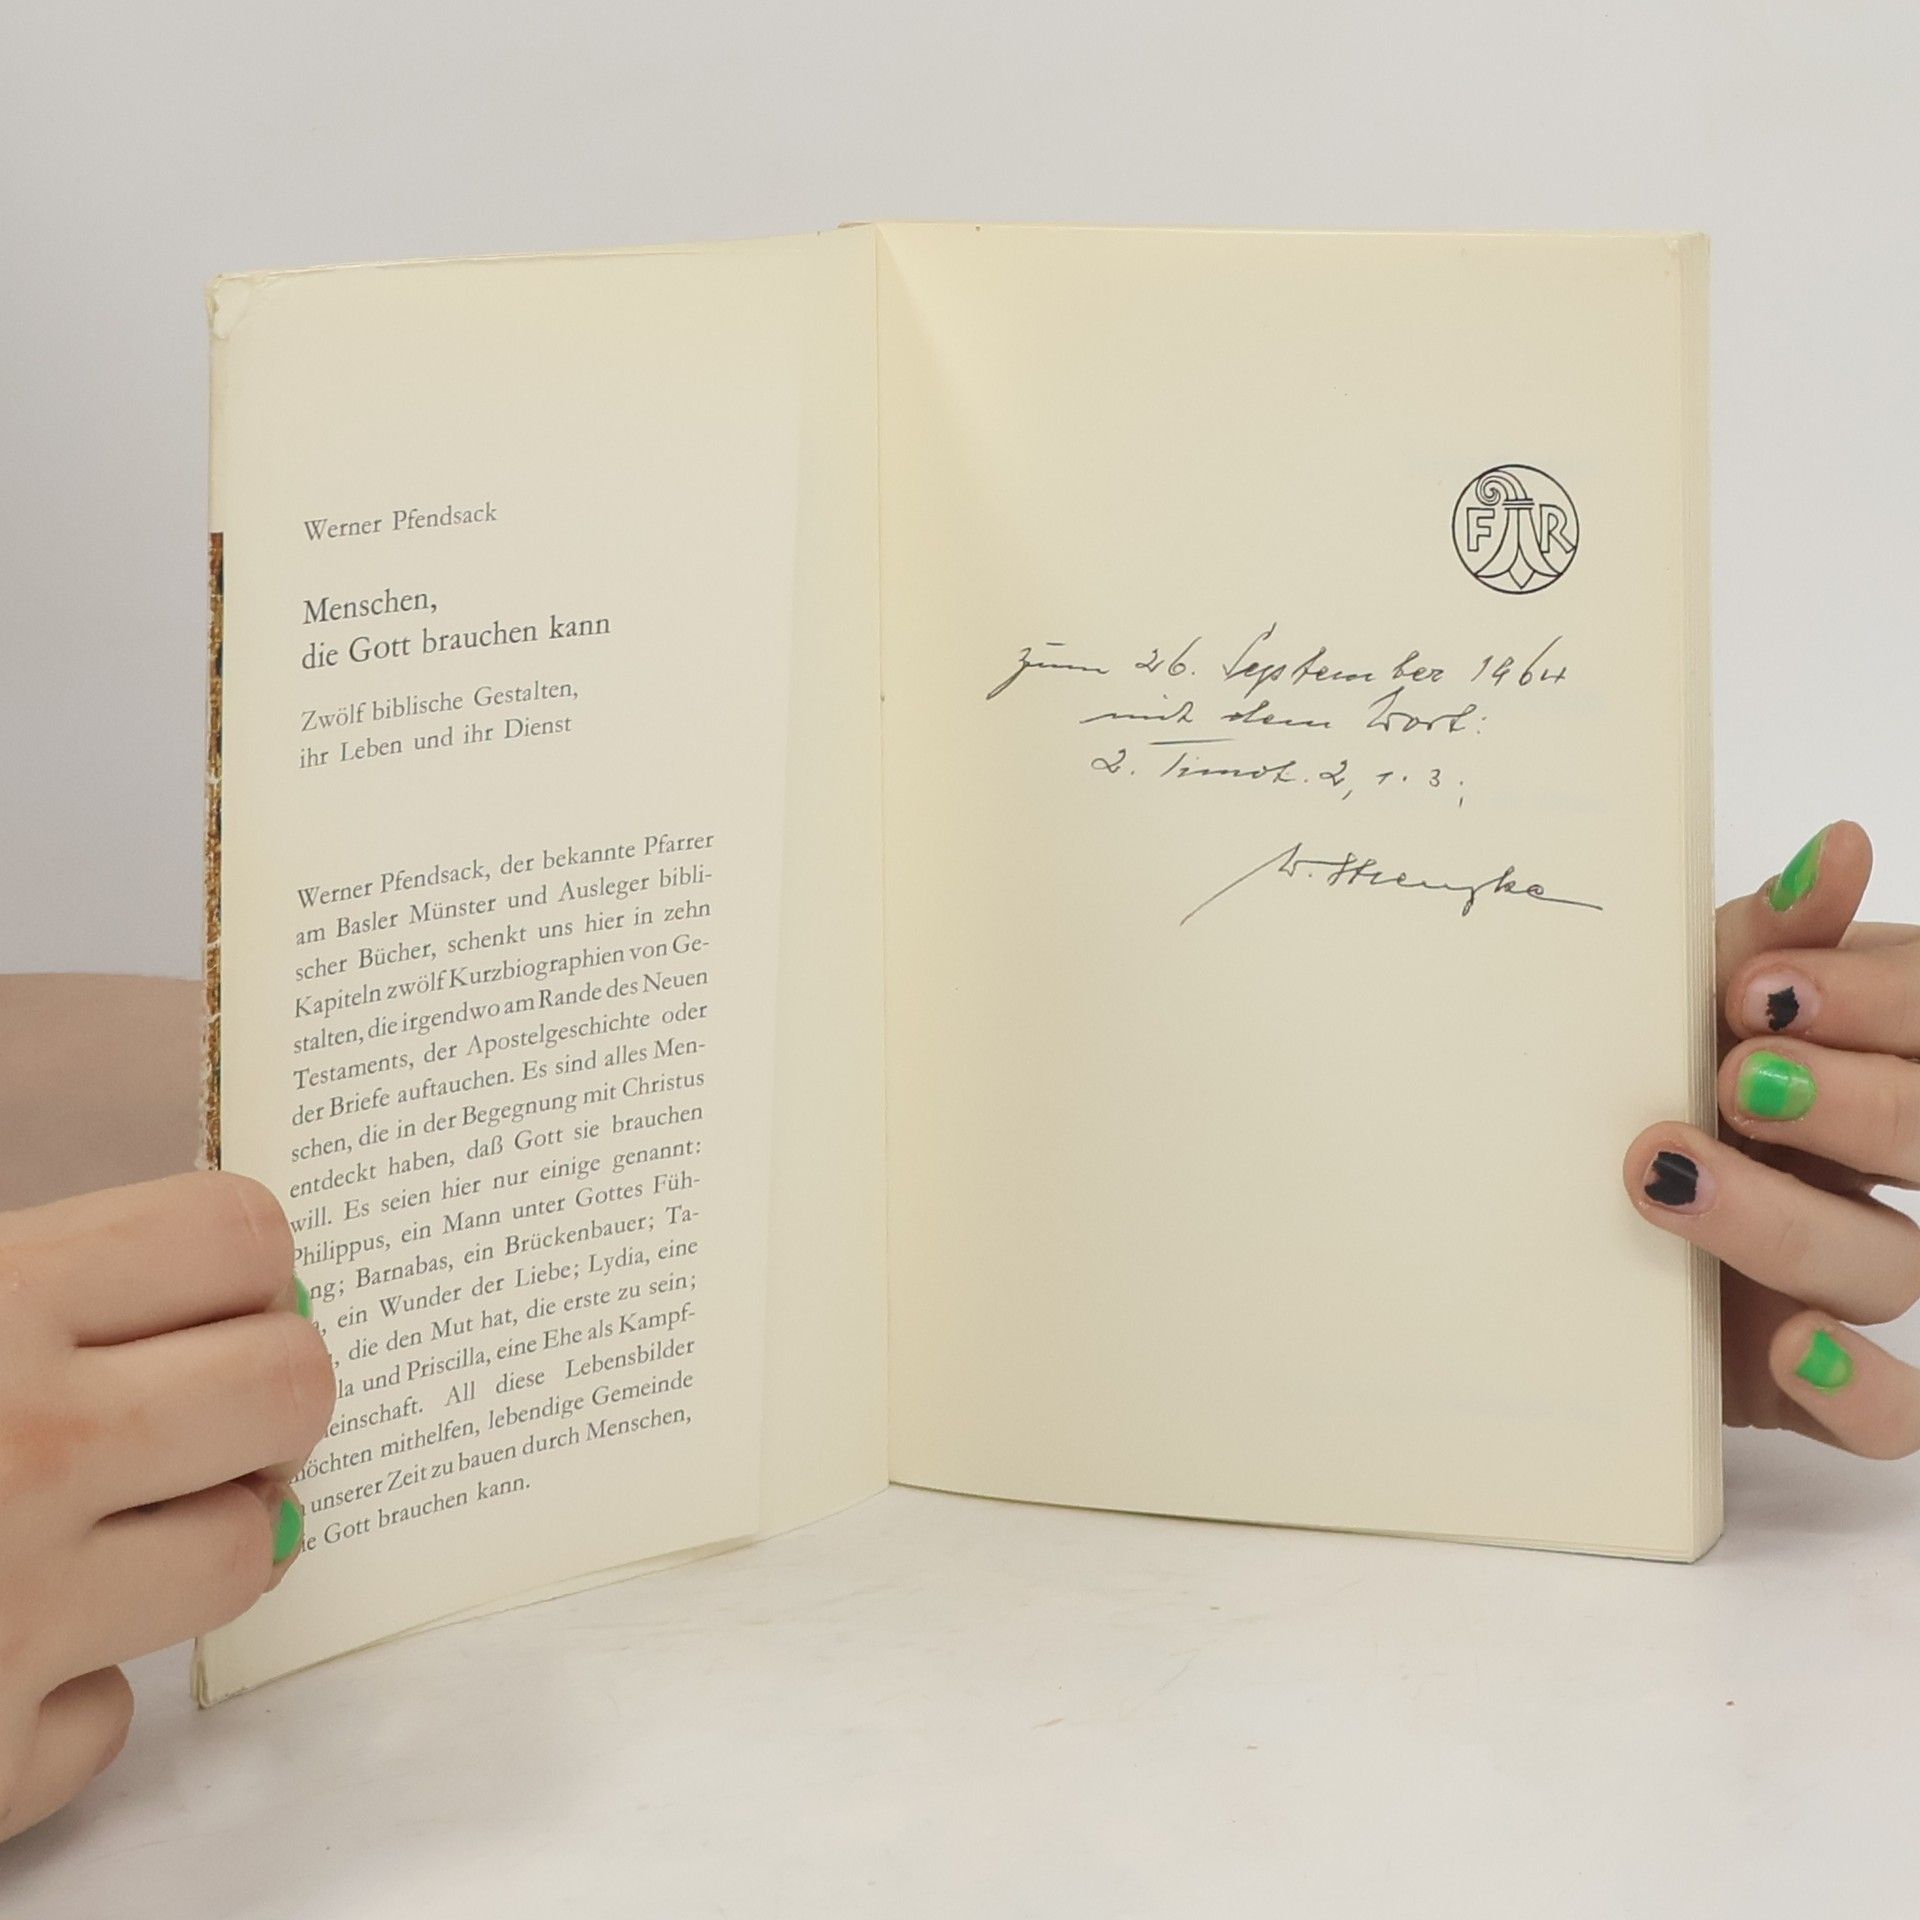 Werner Pfendsack
Menschen,
die Gott brauchen kann
Zwölf biblische Gestalten,
ihr Leben und ihr Dienst
Werner Pfendsack, der bekannte Pfarrer
am Basler Münster und Ausleger bibli-
scher Bücher, schenkt uns hier in zehn
Kapiteln zwölf Kurzbiographien von Ge-
stalten, die irgendwo am Rande des Neuen
Testaments, der Apostelgeschichte oder
der Briefe auftauchen. Es sind alles Men-
schen, die in der Begegnung mit Christus
entdeckt haben, daß Gott sie brauchen
will. Es seien hier nur einige genannt:
Philippus, ein Mann unter Gottes Füh-
ng; Barnabas, ein Brückenbauer; Ta-
, ein Wunder der Liebe; Lydia, eine
, die den Mut hat, die erste zu sein;
la und Priscilla, eine Ehe als Kampf-
einschaft. All diese Lebensbilder
möchten mithelfen, lebendige Gemeinde
unserer Zeit zu bauen durch Menschen,
ie Gott brauchen kann.
F R
zum 26. September 1964
mit dem Wort:
2. Timot. 2, 1.3;
W.